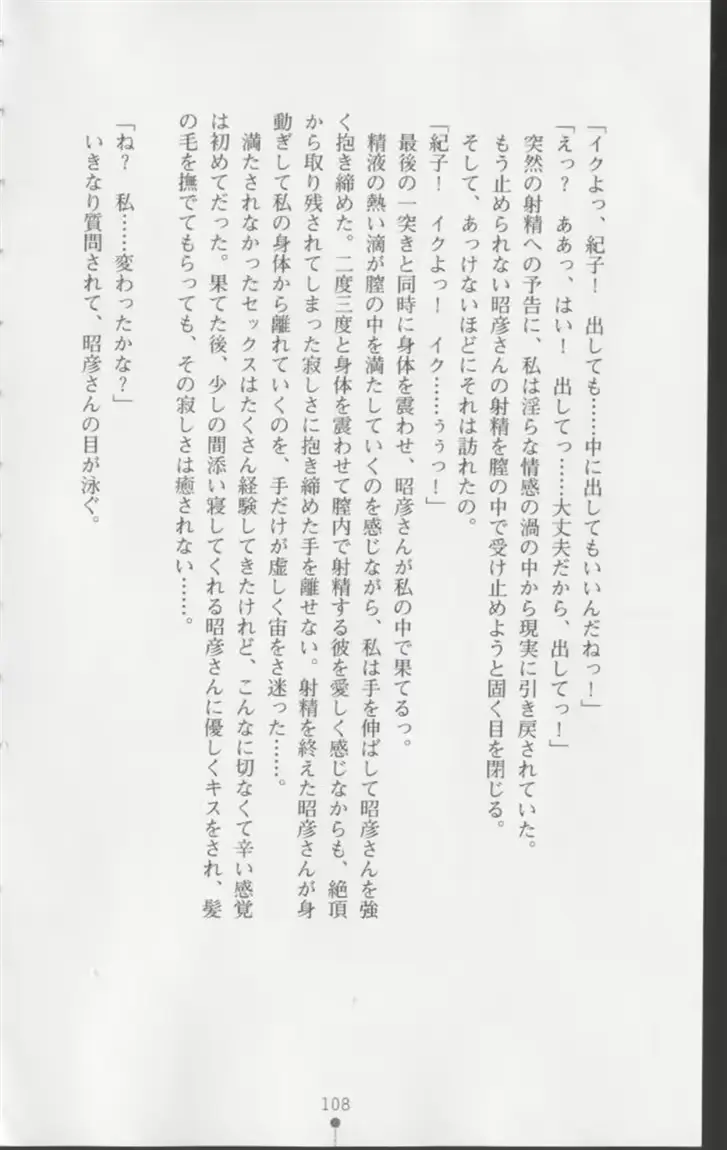 「イクよっ、紀子！　出しても……中に出してもいいんだねっ！」
「えっ？　ああっ、はい！　出してっ……大丈夫だから、出してっ！」
　突然の射精への予告に、私は淫らな情感の渦の中から現実に引き戻されていた。
　もう止められない昭彦さんの射精を膣の中で受け止めようと固く目を閉じる。
　そして、あっけないほどにそれは訪れたの。
「紀子！　イクよっ！　イク……ぅぅっ！」
　最後の一突きと同時に身体を震わせ、昭彦さんが私の中で果てるっ。
　精液の熱い滴が膣の中を満たしていくのを感じながら、私は手を伸ばして昭彦さんを強
く抱き締めた。二度三度と身体を震わせて膣内で射精する彼を愛しく感じながらも、絶頂
から取り残されてしまった寂しさに抱き締めた手を離せない。射精を終えた昭彦さんが身
動ぎして私の身体から離れていくのを、手だけが虚しく宙をさ迷った……。
　満たされなかったセックスはたくさん経験してきたけれど、こんなに切なくて辛い感覚
は初めてだった。果てた後、少しの間添い寝してくれる昭彦さんに優しくキスをされ、髪
の毛を撫でてもらっても、その寂しさは癒されない……。
「ね？　私……変わったかな？」
　いきなり質問されて、昭彦さんの目が泳ぐ。
108